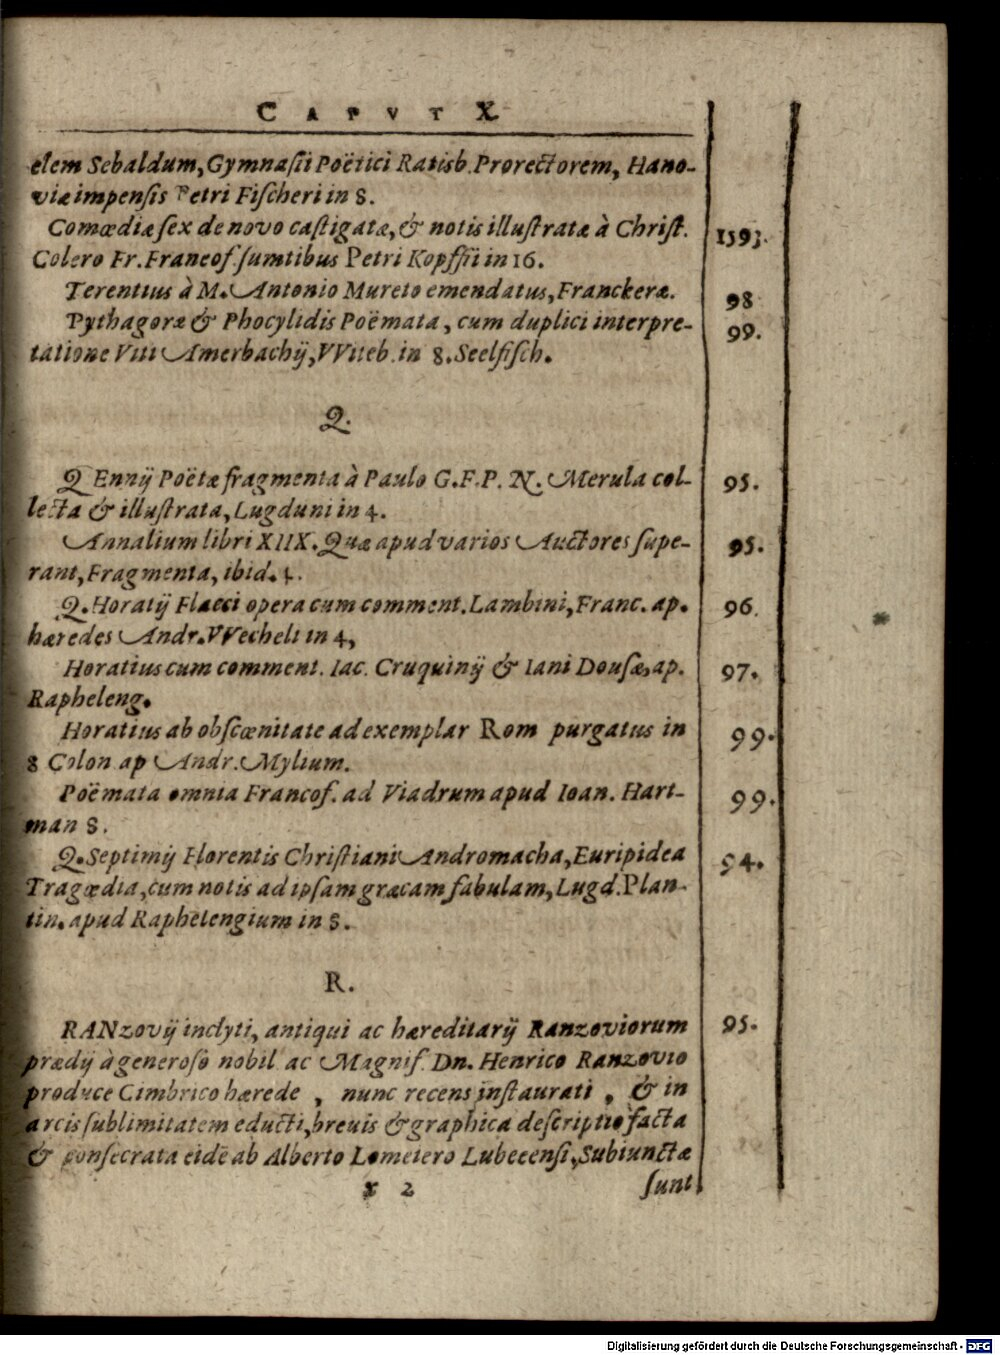 CAPVT X.
elem Sebaldum, Gymnasii Poëtici Ratisb. Prorectorem, Hano-
viæ impensis Petri Fischeri in 8.
Comœdiæ sex de novo castigatæ, & notis illustratæ à Christ. 1593.
Colero Fr. Francof. sumtibus Petri Kopffii in 16.
Terentius à M. Antonio Mureto emendatus, Franckeræ. 98
Pythagoræ & Phocylidis Poëmata, cum duplici interpre- 99.
tatione Viti Amerbachij, VViteb. in 8. Seelfisch.
Q.
Q Ennij Poëtæ fragmenta à Paulo G.F.P. N. Merula col- 95.
lecta & illustrata, Lugduni in 4.
Annalium libri XIIX. Quæ apud varios Auctores supe- 95.
rant, Fragmenta, ibid. 4.
Q. Horatij Flacci opera cum comment. Lambini, Franc. ap. 96.
hæredes Andr. VVecheli in 4,
Horatius cum comment. Iac. Cruquinij & Iani Dousæ, ap. 97.
Rapheleng.
Horatius ab obscœnitate ad exemplar Rom purgatus in 99.
8 Colon ap Andr. Mylium.
Poëmata omnia Francof. ad Viadrum apud Ioan. Hart- 99.
man 8.
Q. Septimij Florentis Christiani Andromacha, Euripidea 94.
Tragœdia, cum notis ad ipsam græcam fabulam, Lugd. Plan-
tin. apud Raphelengium in 8.
R.
RANzovij inclyti, antiqui ac hæreditarij Ranzoviorum 95.
prædij à generoso nobil ac Magnif. Dn. Henrico Ranzovio
produce Cimbrico hærede, nunc recens instaurati, & in
arcis sublimitatem educti, brevis & graphica descriptio facta
& consecrata eidē ab Alberto Lomeiero Lubecensi, Subiunctæ
x 2 sunt
Digitalisierung gefördert durch die Deutsche Forschungsgemeinschaft - DFG